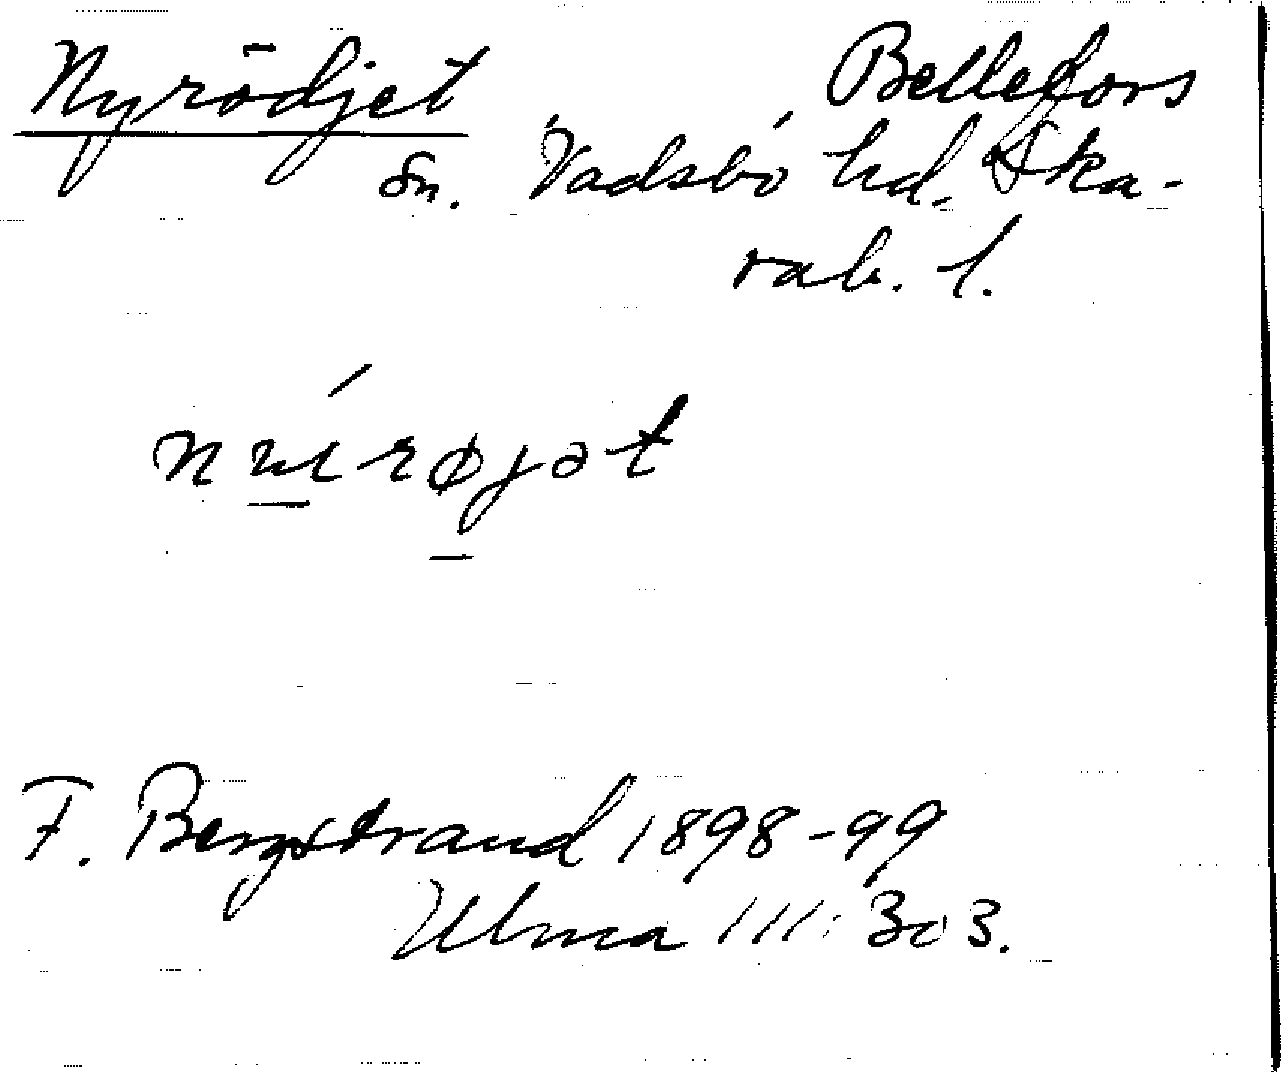 Nyrödjet Bellefors
Sn. Vadsbo hd. Ska-
rab. l.
F. Bergstrand 1898-99
Ulma 111:303.